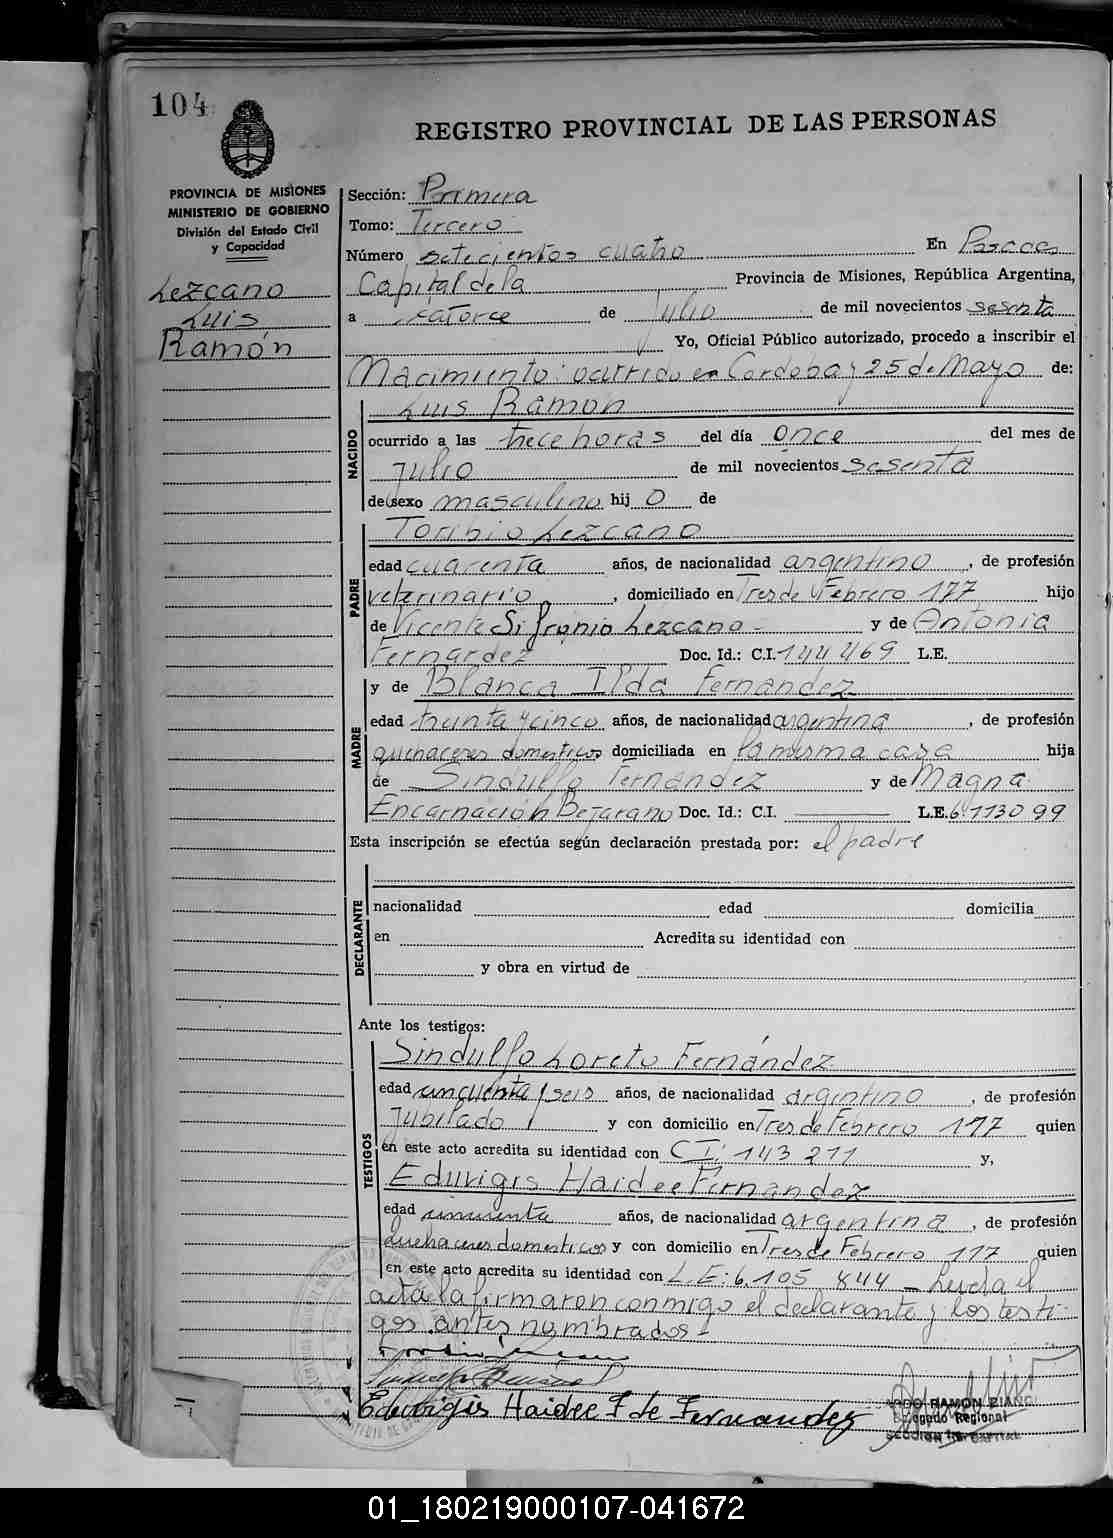 104
REGISTRO PROVINCIAL DE LAS PERSONAS
PROVINCIA DE MISIONES
MINISTERIO DE GOBIERNO
División del Estado Civil
y Capacidad
Lezcano
Luis
Ramón
Sección: Primera
Tomo: Tercero
Número setecientos cuatro En Posadas
Capital de la Provincia de Misiones, República Argentina,
a catorce de Julio de mil novecientos sesenta
Yo, Oficial Público autorizado, procedo a inscribir el
Nacimiento ocurrido en Cordoba y 25 de Mayo de:
NACIDO
Luis Ramon
ocurrido a las trece horas del día once del mes de
Julio de mil novecientos sesenta
de sexo masculino hij o de
PADRE
Toribio Lezcano
edad cuarenta años, de nacionalidad argentino, de profesión
veterinario, domiciliado en Tres de Febrero 177 hijo
de Vicente Sifronio Lezcano y de Antonia
Fernandez Doc. Id.: C.I. 144 469 L.E.
MADRE
y de Blanca Ilda Fernandez
edad treinta y cinco años, de nacionalidad argentina, de profesión
quehaceres domesticos domiciliada en la misma casa hija
de Sindulfo Fernández y de Magna
Encarnación Bejarano Doc. Id.: C.I. L.E. 6.113099
Esta inscripción se efectúa según declaración prestada por: el padre
DECLARANTE
nacionalidad edad domicilia
en Acredita su identidad con
y obra en virtud de
Ante los testigos:
TESTIGOS
Sindulfo Loreto Fernández
edad cincuenta y seis años, de nacionalidad argentino, de profesión
Jubilado y con domicilio en Tres de Febrero 177 quien
en este acto acredita su identidad con CI: 143 211 y,
Eduvigis Haidee Fernandez
edad cincuenta años, de nacionalidad argentina, de profesión
quehaceres domesticos y con domicilio en Tres de Febrero 177 quien
en este acto acredita su identidad con L.E: 6.105 844 - Leida el
acta la firmaron conmigo el declarante y los testi-
gos antes nombrados-
Eduvigis Haidee F de Fernandez
RAMON
Delegado Regional
SECCION 1a. CAPITAL
01_180219000107-041672